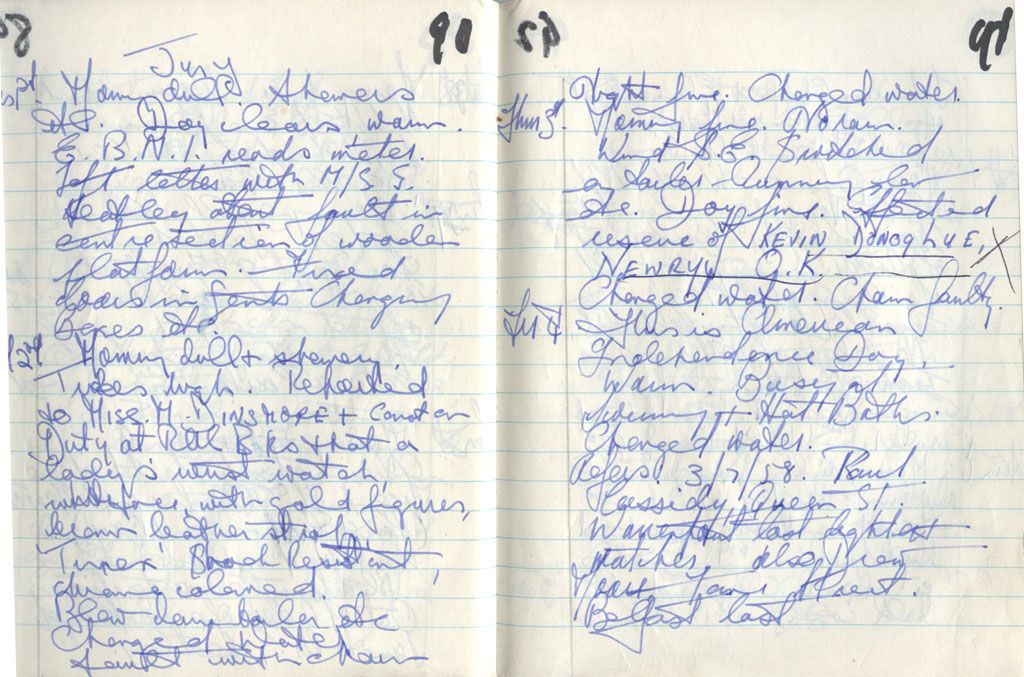 58
90
July
1st. Morning dull. Showers
etc. Day clears, warm.
E. B. N. I. reads meter.
Left letter with M/S S.
Heatley about fault in
centre section of wooden
platform. Fixed
doors in Gents Changing
Boxes etc.
2nd Morning dull & showery.
Tides high. Reported
to MISS. M. DINSMORE + Const on
Duty at RUC B'ks that a
lady's wrist watch,
white face, with gold figures,
brown leather strap,
Timex Shock Resistant,
strong colored.
Blew down boiler etc
Changed Water
fault with chain
57
91
Night fine. Changed water.
Thurs 3rd. Morning fine. No rain.
Wind S.E. Switched
on boiler. Running slow
etc. Day fine. Effected
rescue of KEVIN DONOGHUE, X
NEWRY O.K.
Changed water. Chain faulty.
Fri 4 This is American
Independence Day.
Warm. Busy at
Swimming + Hot Baths.
Changed water.
3/7/58. Paul
Cassidy, Queen St.
Warrenpoint lost
also
Street.
Belfast last